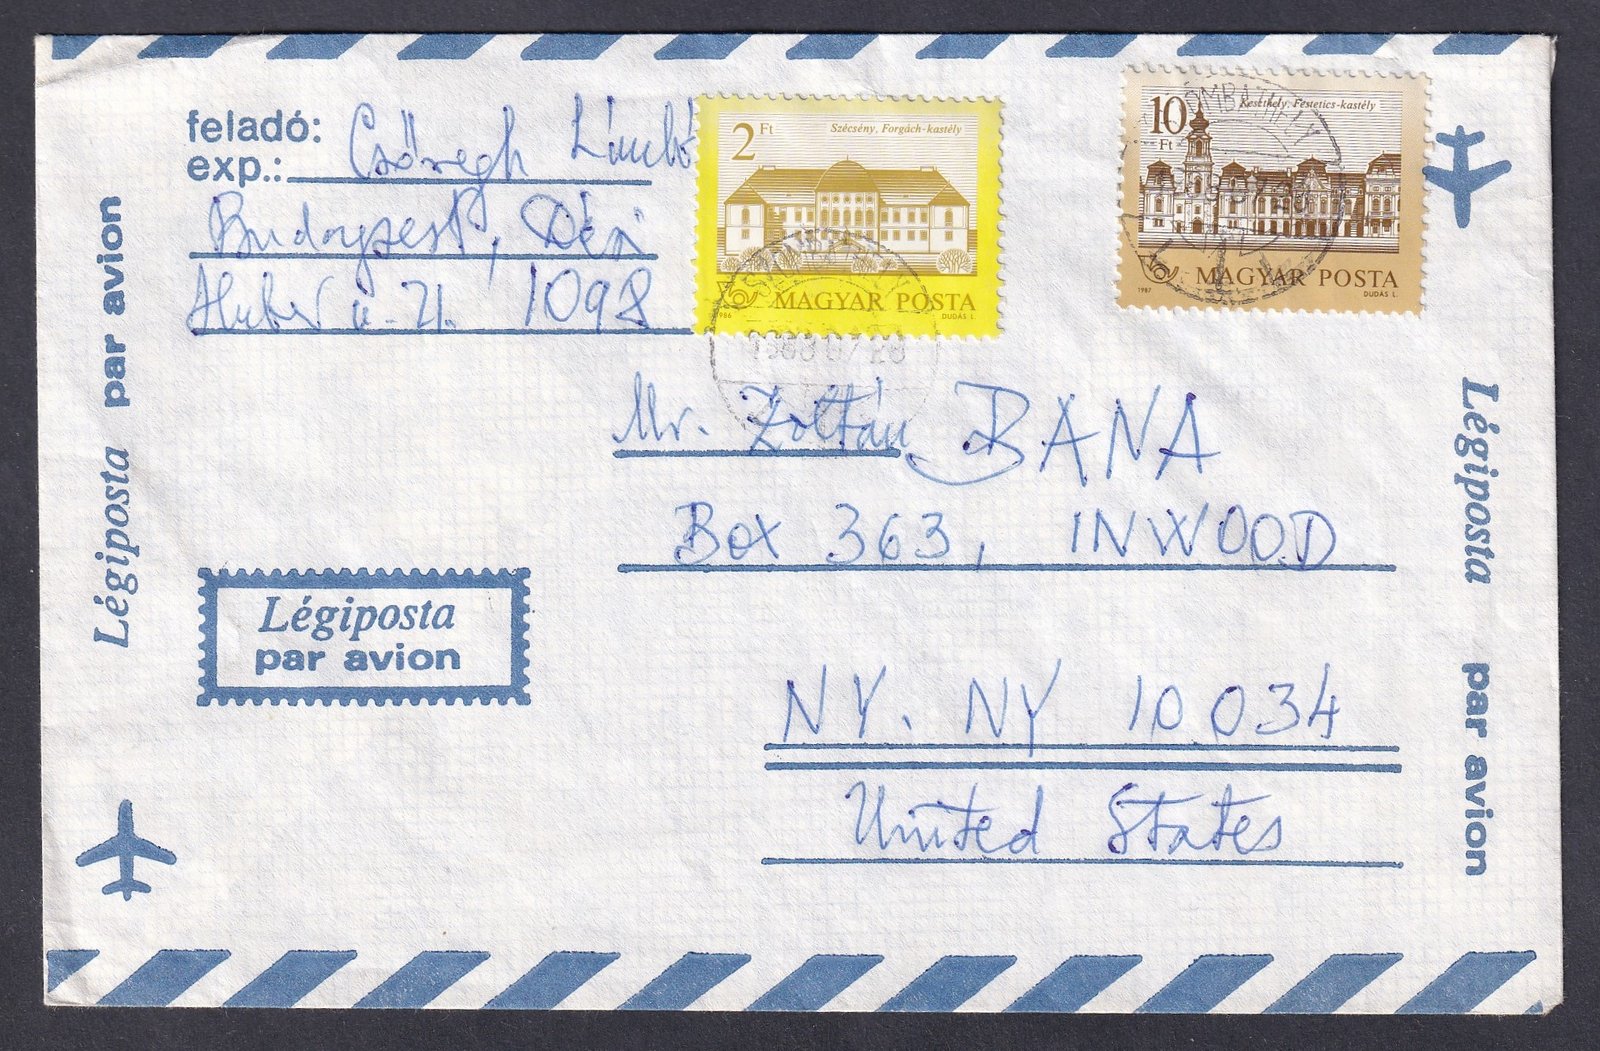 feladó:
exp.: Csöregh László
Budapest, Dési
Huber u. 21. 1098
2 Ft
Szécsény, Forgách-kastély
MAGYAR POSTA
1986 DUDÁS L.
SZOMBATHELY
10 Ft
Keszthely, Festetics-kastély
MAGYAR POSTA
1987 DUDÁS L.
OMBATHELY
Mr. Zoltán BANA
Box 363, INWOOD
NY. NY 10034
United States
Légiposta
par avion
Légiposta par avion
Légiposta par avion